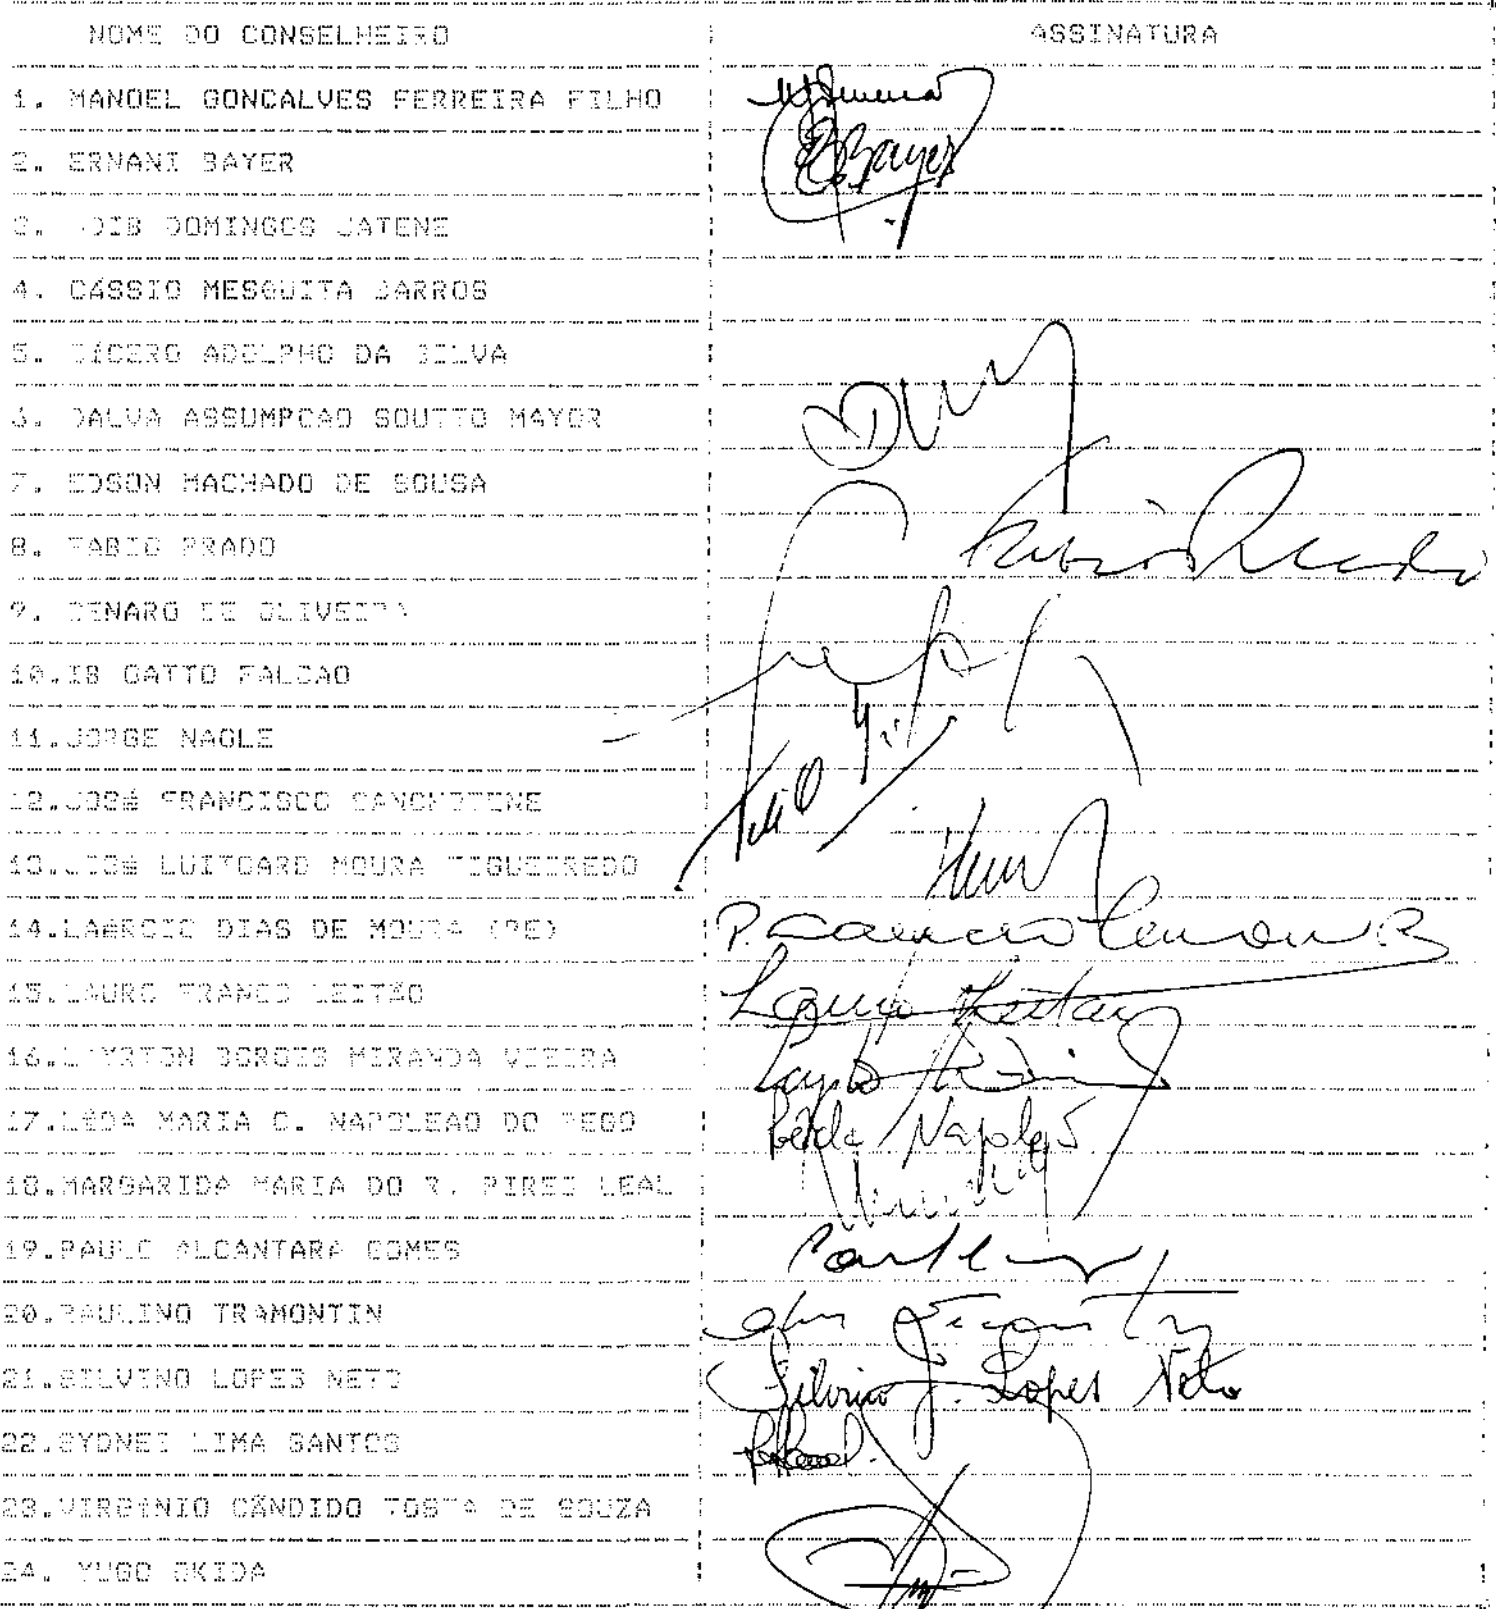 NOME DO CONSELHEIRO ASSINATURA
1. MANOEL GONCALVES FERREIRA FILHO
2. ERNANI BAYER EBayer
3. ADIB DOMINGOS JATENE
4. CÁSSIO MESQUITA BARROS
5. CÍCERO ADOLPHO DA SILVA
6. DALVA ASSUMPCAO SOUTTO MAYOR
7. EDSON MACHADO DE SOUSA
8. FABIO PRADO Fabio Prado
9. GENARO DE OLIVEIRA
10.IB GATTO FALCAO
11.JORGE NAGLE
12.JOSÉ FRANCISCO SANCHOTENE
13.JOSÉ LUITGARD MOURA FIGUEIREDO
14.LAÉRCIO DIAS DE MOURA (PE)
15.LAURO FRANCO LEITÃO Lauro Leitão
16.LAYRTON BORGES MIRANDA VIEIRA
17.LÉDA MARIA C. NAPOLEAO DO REGO Lêda Napoleão
18.MARGARIDA MARIA DO R. PIRES LEAL
19.PAULO ALCANTARA GOMES
20.PAULINO TRAMONTIN
21.SILVINO LOPES NETO Silvino J. Lopes Neto
22.SYDNEI LIMA SANTOS
23.VIRGÍNIO CÂNDIDO TOSTA DE SOUZA
24. YUGO OKIDA